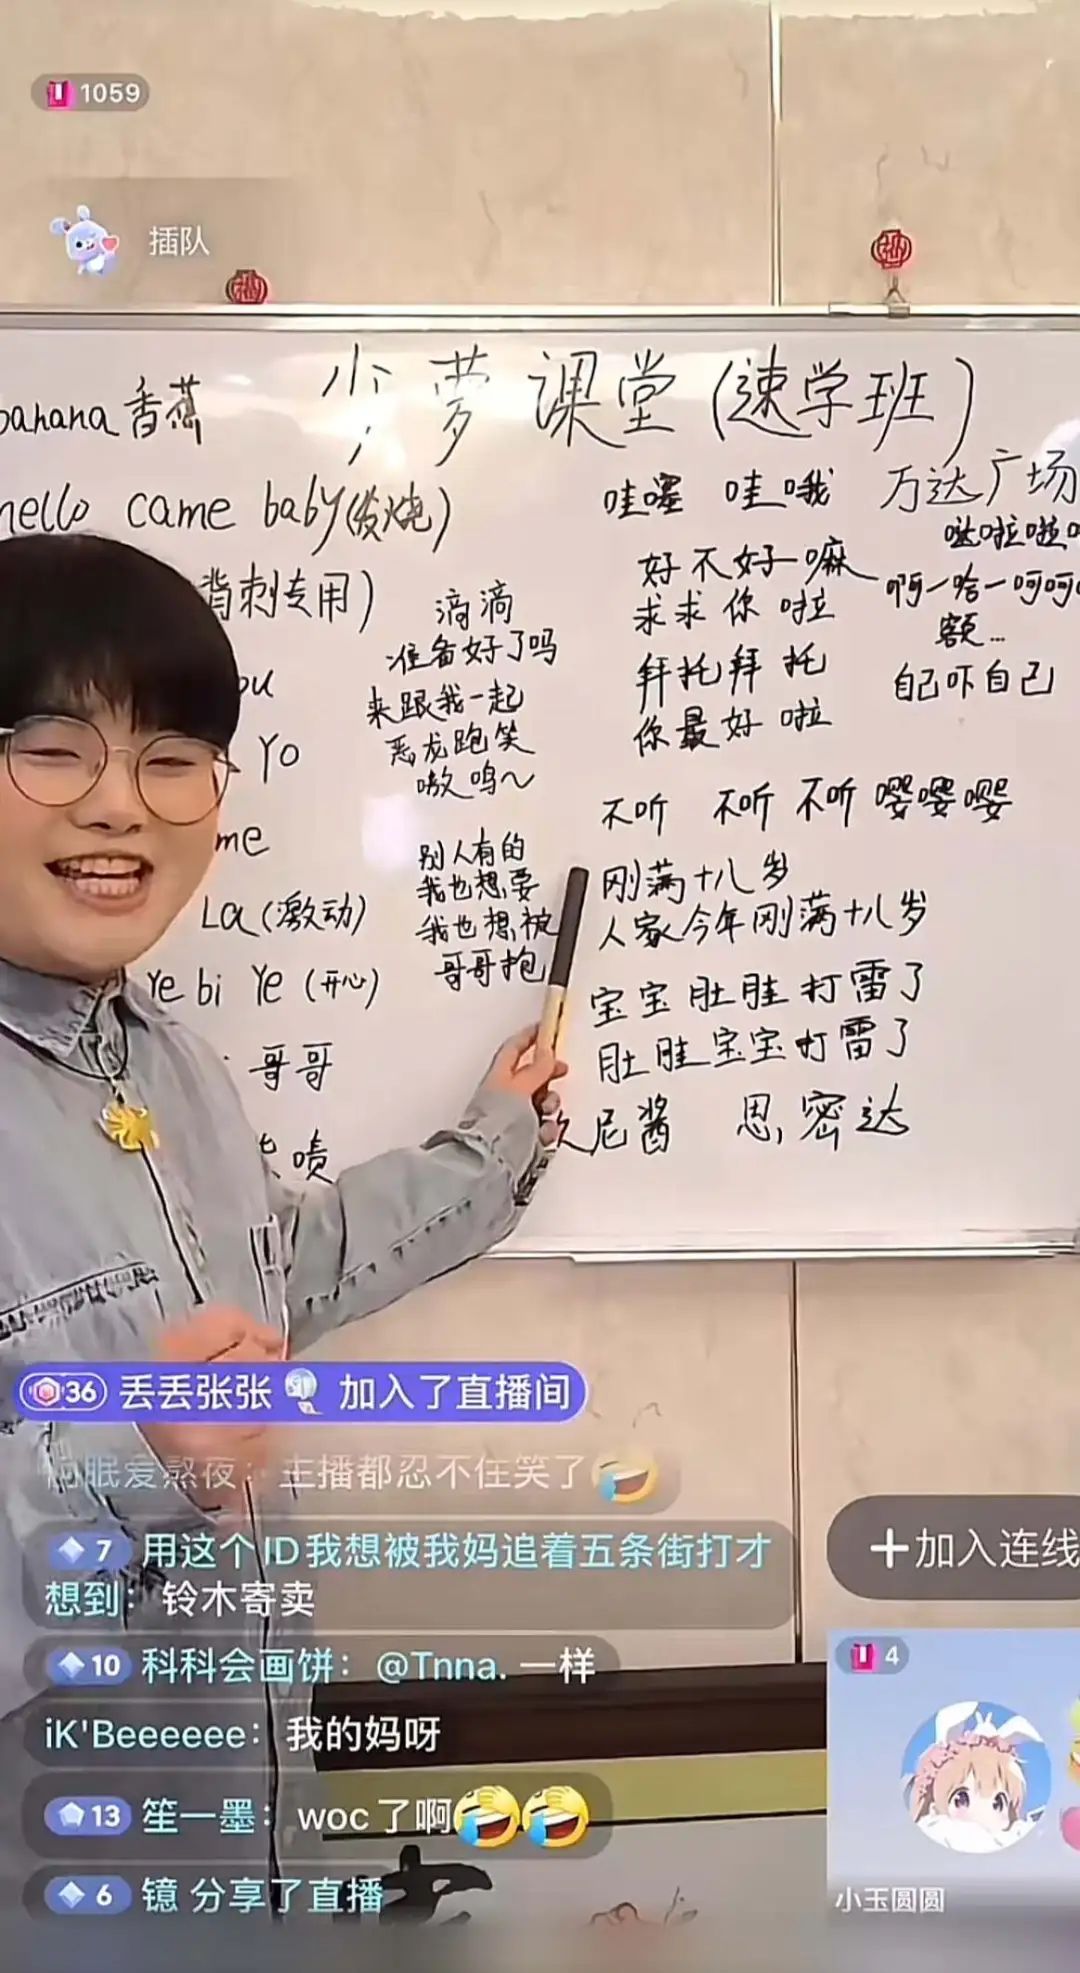 1059
插队
banana 香蕉
少萝课堂(速学班)
hello came baby(发烧)
背刺专用)
ou
Yo
me
La(激动)
Ye bi Ye (开心)
哥哥
啧
滴滴
准备好了吗
来跟我一起
恶龙跑笑
嗷呜~
别人有的
我也想要
我也想被
哥哥抱
哇噻 哇哦
好不好嘛
求求你啦
拜托拜托
你最好啦
不听 不听 不听 嘤嘤嘤
刚满十八岁
人家今年刚满十八岁
宝宝肚肚打雷了
肚肚宝宝打雷了
尼酱 思密达
万达广场
哒啦啦
啊一哈一呵呵
额...
自己吓自己
36 丢丢张张 加入了直播间
眠爱熬夜：主播都忍不住笑了🤣
7 用这个ID我想被我妈追着五条街打才
想到：铃木寄卖
10 科科会画饼：@Tnna. 一样
iK'Beeeeee：我的妈呀
13 笙一墨：woc了啊🤣🤣
6 镱 分享了直播
+加入连线
4
小玉圆圆